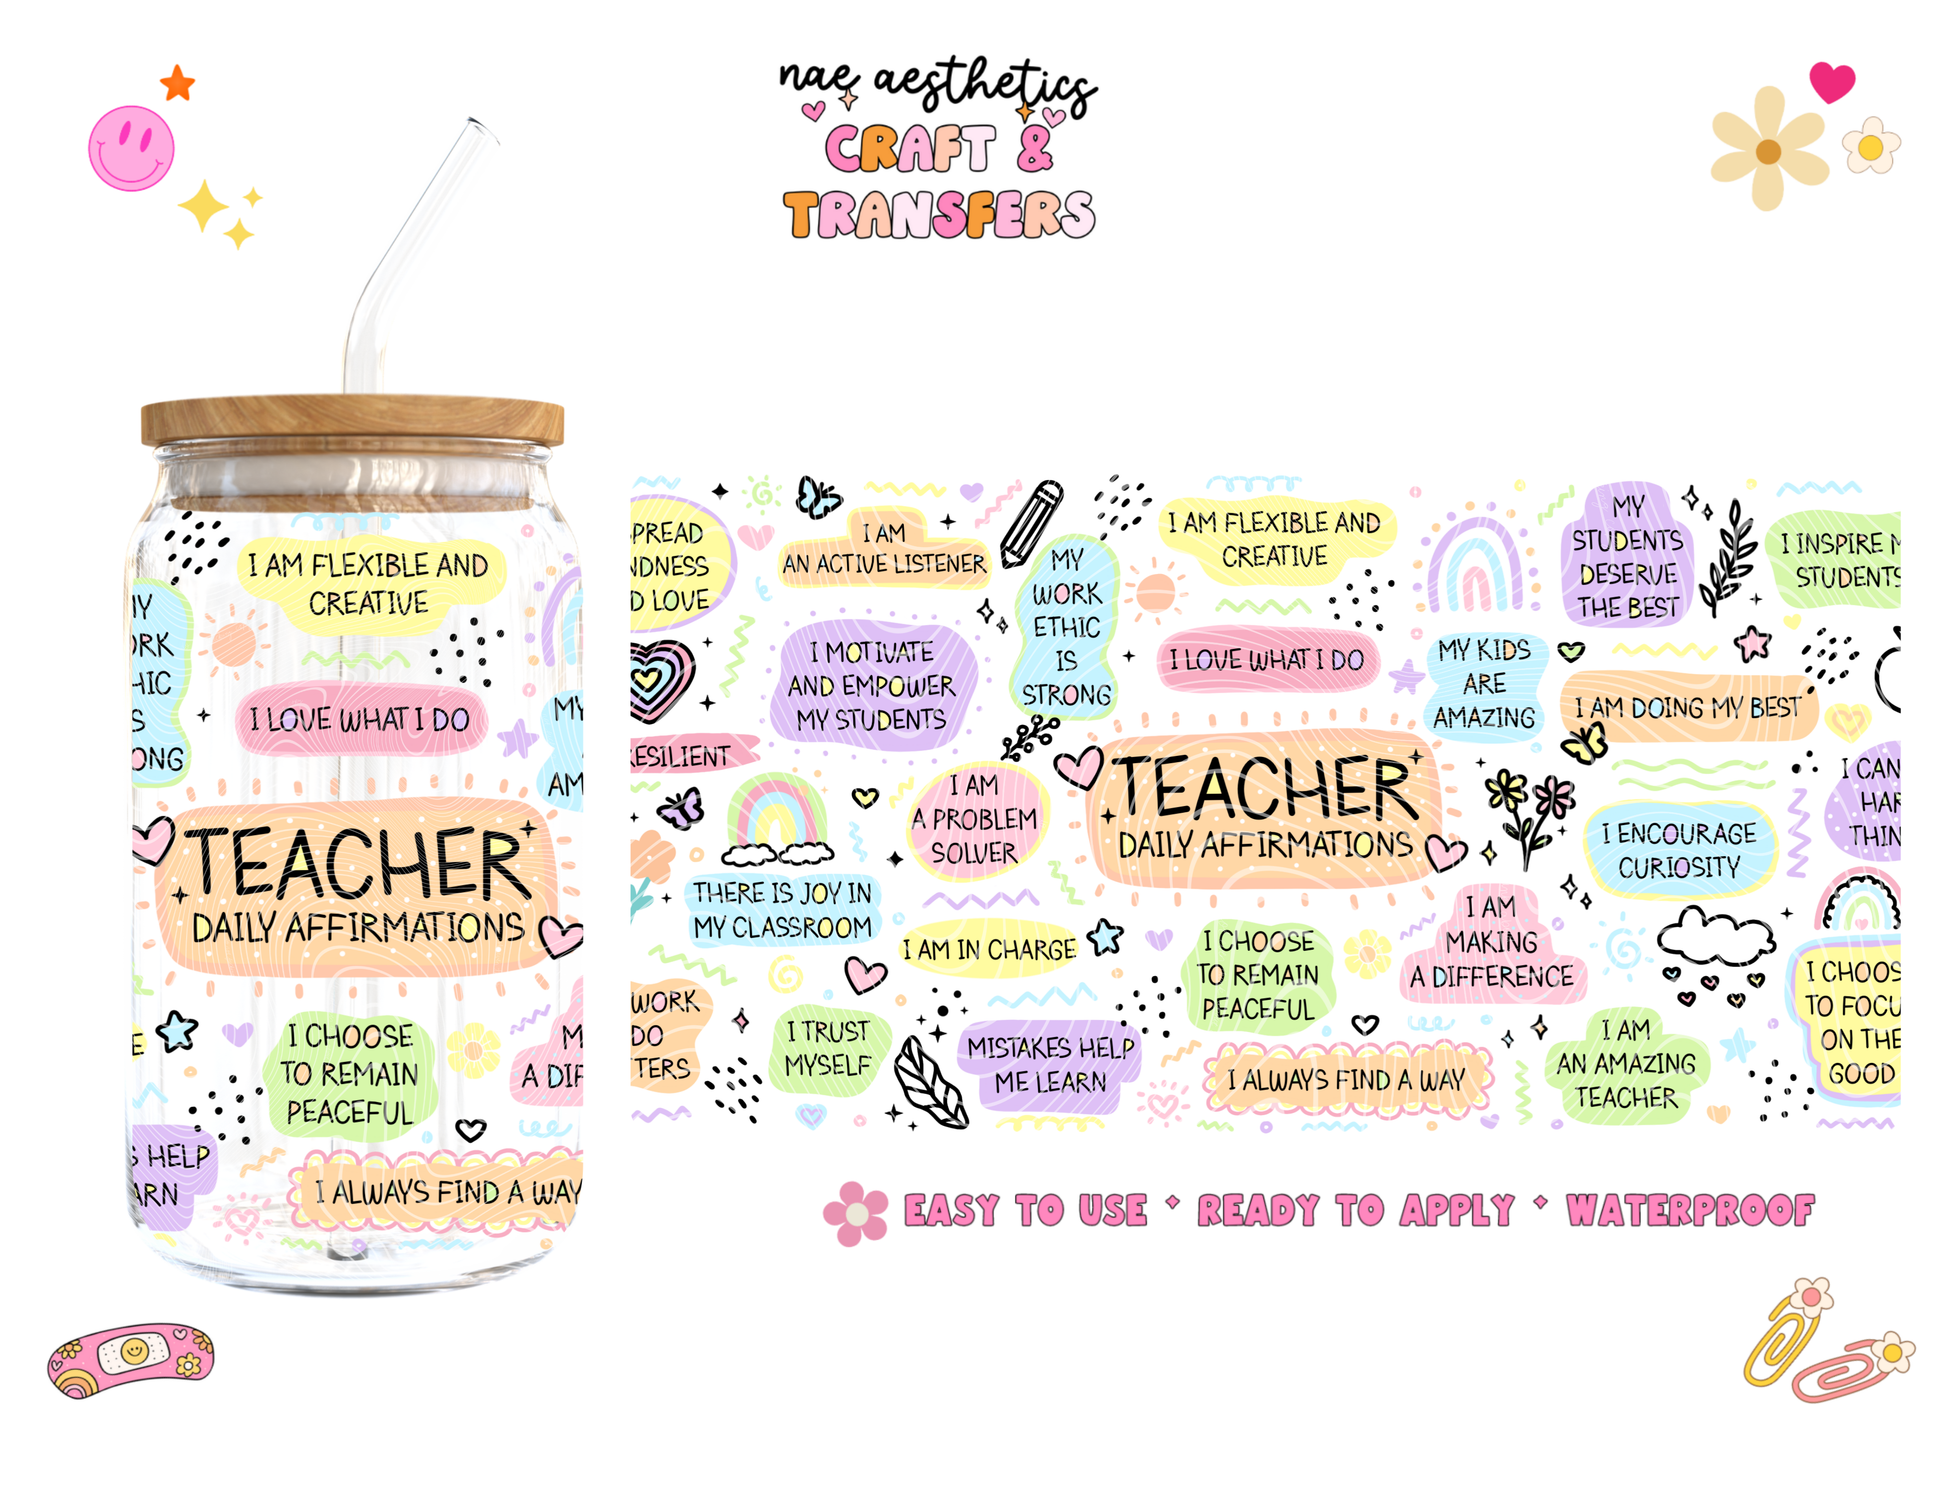 nae aesthetics
CRAFT &
TRANSFERS
I AM FLEXIBLE AND
CREATIVE
I LOVE WHAT I DO
TEACHER
DAILY AFFIRMATIONS
I CHOOSE
TO REMAIN
PEACEFUL
HELP
I ALWAYS FIND A WAY
PREAD
NDNESS
D LOVE
I AM
AN ACTIVE LISTENER
MY
WORK
ETHIC
IS
STRONG
I AM FLEXIBLE AND
CREATIVE
MY
STUDENTS
DESERVE
THE BEST
I INSPIRE M
STUDENTS
I MOTIVATE
AND EMPOWER
MY STUDENTS
I LOVE WHAT I DO
MY KIDS
ARE
AMAZING
I AM DOING MY BEST
ESILIENT
I AM
A PROBLEM
SOLVER
TEACHER
DAILY AFFIRMATIONS
I ENCOURAGE
CURIOSITY
I CAN
HAR
THIN
THERE IS JOY IN
MY CLASSROOM
I AM IN CHARGE
I CHOOSE
TO REMAIN
PEACEFUL
I AM
MAKING
A DIFFERENCE
I CHOOS
TO FOCU
ON THE
GOOD
WORK
DO
TERS
I TRUST
MYSELF
MISTAKES HELP
ME LEARN
I ALWAYS FIND A WAY
I AM
AN AMAZING
TEACHER
EASY TO USE * READY TO APPLY * WATERPROOF